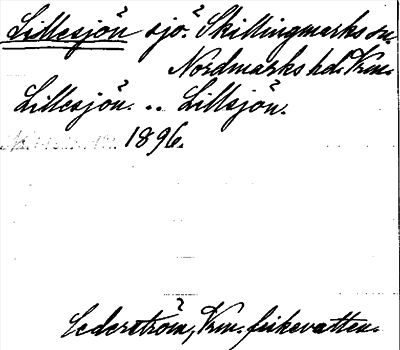 Lillesjön sjö. Skillingmarks sn.
Nordmarks hd. Vrm.
Lillesjön. .. Lillsjön.
1896.
Cederström, Vrm. fiskevatten.